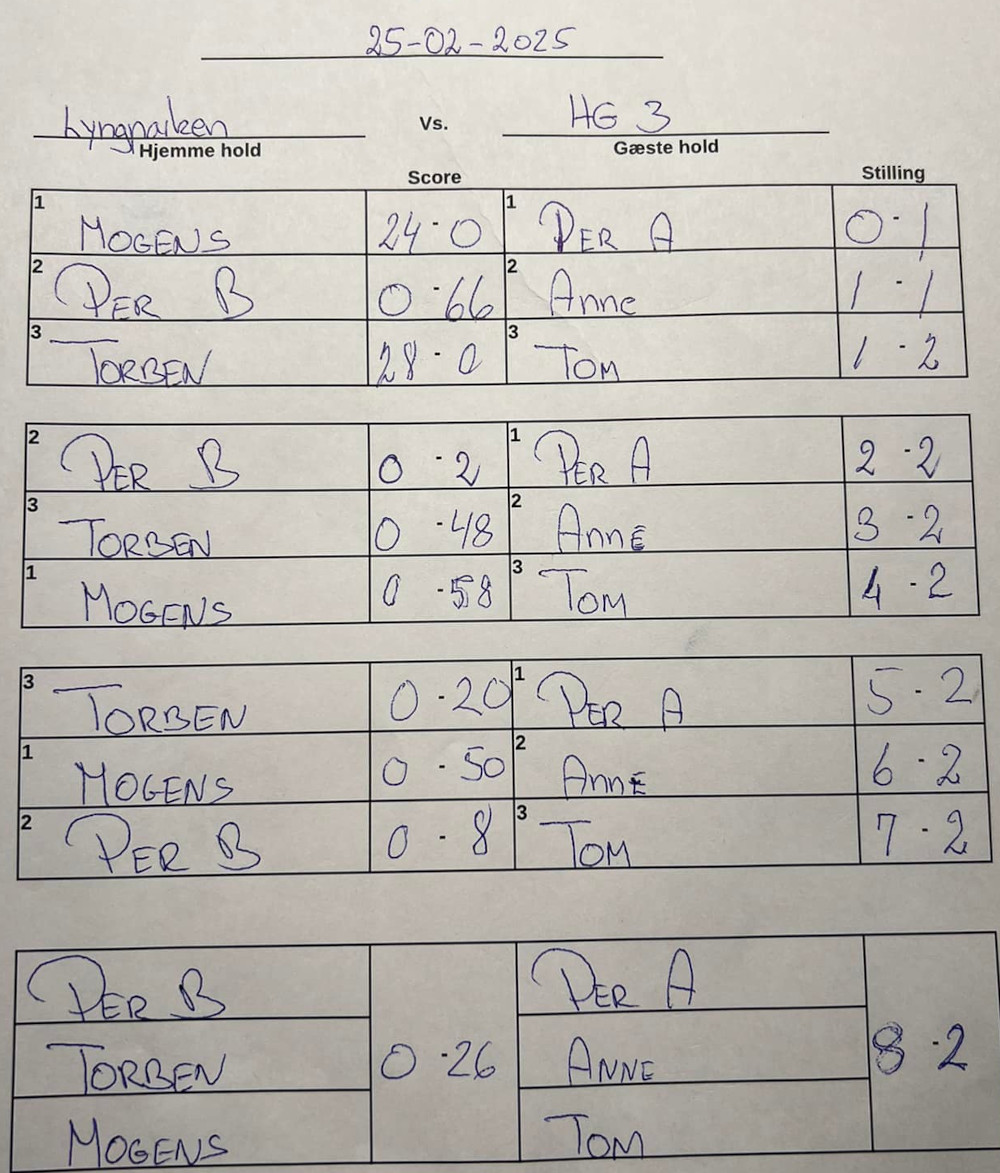 25-02-2025
Lyngparken Vs. HG 3
Hjemme hold Gæste hold
Score Stilling
1 MOGENS 24-0 1 PER A 0-1
2 PER B 0-66 2 Anne 1-1
3 TORBEN 28-0 3 TOM 1-2
2 PER B 0-2 1 PER A 2-2
3 TORBEN 0-48 2 AnnE 3-2
1 MOGENS 0-58 3 TOM 4-2
3 TORBEN 0-20 1 PER A 5-2
1 MOGENS 0-50 2 AnnE 6-2
2 PER B 0-8 3 TOM 7-2
PER B PER A
TORBEN 0-26 ANNE 8-2
MOGENS TOM